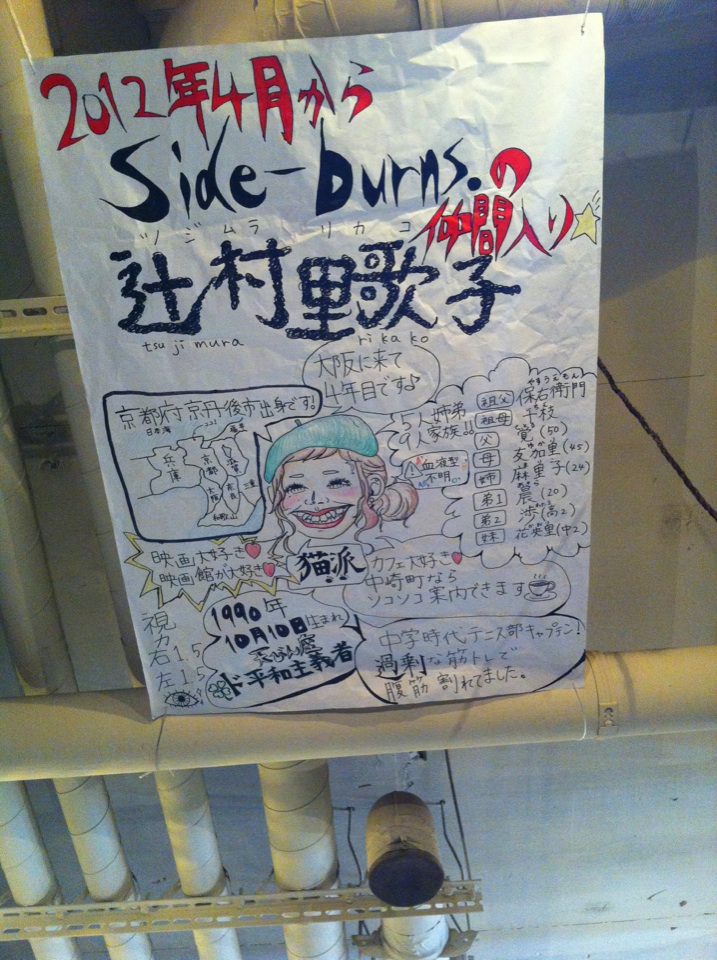 2012年4月から
Side-burns.の
仲間入り
ツジムラ リカコ
辻村里歌子
tsujimura rikako
大阪に来て
4年目です♪
京都府京丹後市出身です!
日本海
兵庫
京都
大阪
奈良
三重
和歌山
5人姉弟
9人家族!!
血液型
不明
やすうえもん
祖父 保右衛門
祖母 千枝
父 覚(50)
母 友加里(45)
姉 麻里子(24)
弟1 農(20)
弟2 渉(高2)
妹 花英里(中2)
映画大好き
映画館が大好き
猫派
カフェ大好き
中崎町なら
ソコソコ案内できます
視力
右1.5
左1.5
1990年
10月10日生まれ
天びん座
ド平和主義者
中学時代テニス部キャプテン!
過剰な筋トレで
腹筋割れてました。